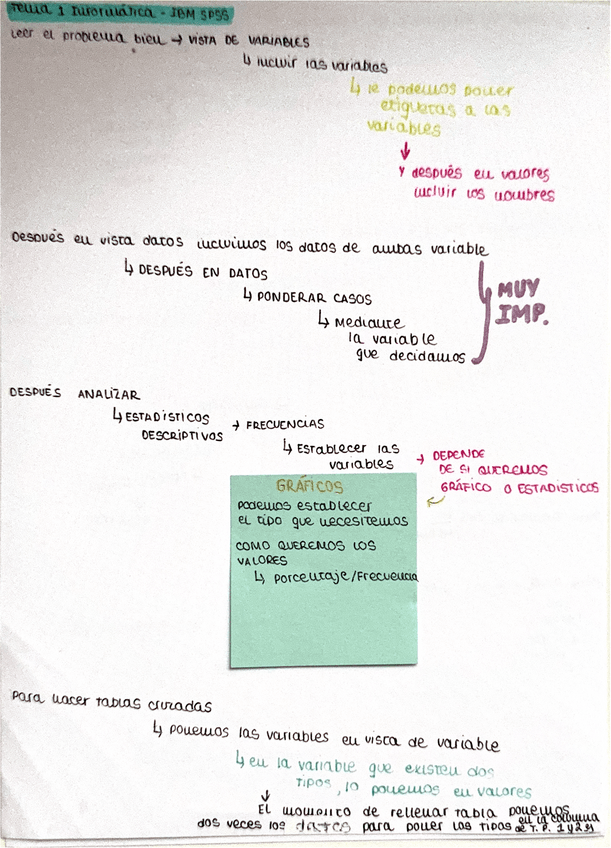 Tema 1 Informática - IBM SPSS
Leer el problema bien → VISTA DE VARIABLES
↳ incluir las variables
↳ le podemos poner
etiquetas a las
variables
↓
Y después en valores
incluir los nombres
Después en vista datos incluimos los datos de ambas variable
↳ DESPUÉS EN DATOS
↳ PONDERAR CASOS
↳ Mediante
la variable
que decidamos
MUY
IMP.
DESPUÉS ANALIZAR
↳ ESTADÍSTICOS
DESCRIPTIVOS → FRECUENCIAS
↳ Establecer las
variables → DEPENDE
DE SI QUEREMOS
GRÁFICO O ESTADISTICOS
GRÁFICOS
Podemos establecer
el tipo que necesitemos
COMO QUEREMOS LOS
VALORES
↳ Porcentaje/Frecuencia
Para hacer tablas cruzadas
↳ ponemos las variables en vista de variable
↳ en la variable que existen dos
tipos, lo ponemos en valores
↓
El momento de rellenar tabla ponemos
dos veces los datos para poner los tipos en la columna
de T.P. 1 y 2